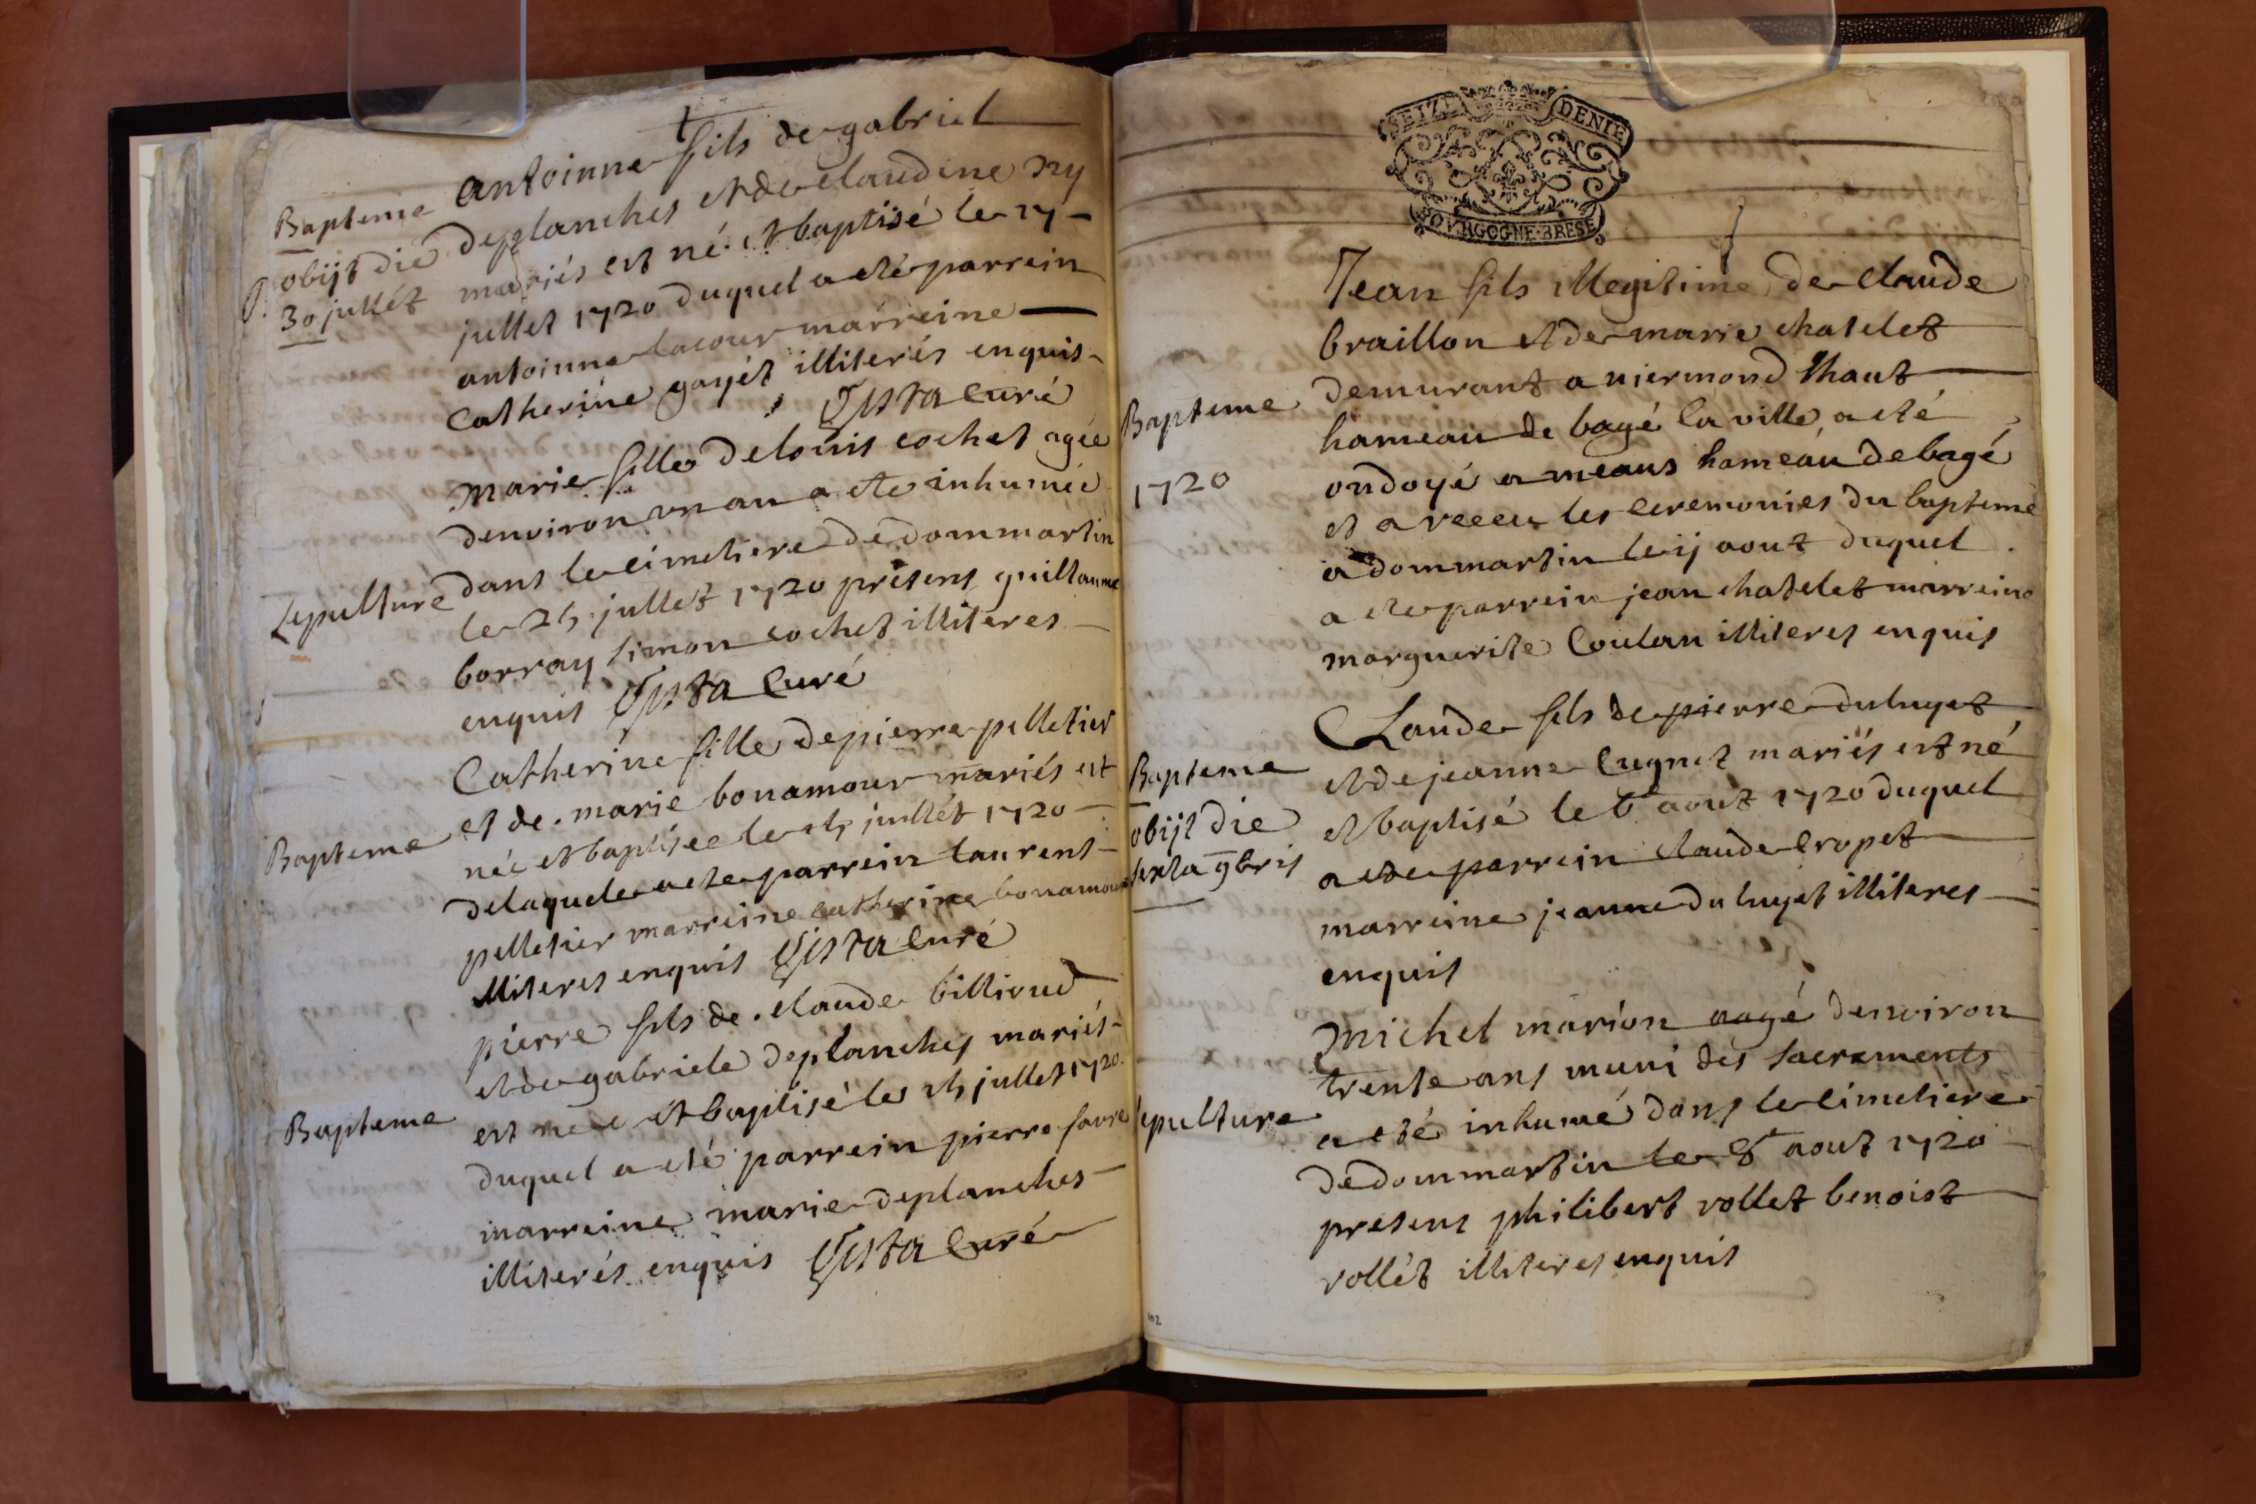 Bapteme
obijt die
30 jullet
antoinne fils de gabriel
deplanches et de claudine
mariés est né et baptisé le 17
jullet 1720 duquel a eté parrein
antoinne lacour marreine
Catherine gayét illiterés enquis
Vista Curé
Sepulture
marie fille de louis cochet agée
denviron un an a ete inhumée
dans le cimetiere de dommartin
le 25 jullet 1720 présens guillaume
borray simon cochet illiteres
enquis Vista Curé
Bapteme
Catherine fille de pierre pelletier
et de marie bonamour mariés est
née et baptisee le jullét 1720
delaquele a ete parrein laurent
pelletier marreine catherine bonamour
illiteres enquis Vista Curé
Bapteme
pierre fils de claude billioud
et de gabriele deplanches mariés
est né et baptisé le jullet 1720
duquel a eté parrein pierre favre
marreine marie deplanches
illiterés enquis Vista Curé
SEIZE DENIE
BOVRGOGNE BRESE
Bapteme
1720
Jean fils illegitime de claude
braillon et de marie chatelet
demurant a niermond
hameau de bagé la ville a eté
ondoyé a meaus hameau de bagé
et a receu les ceremonies du bapteme
a dommartin le ij aout duquel
a ete parrein jean chatelet marreine
marguerite Coulan illiteres enquis
Bapteme
obijt die
sexta 9bris
Claude fils de pierre duluyet
et de jeanne Cugnet mariés est né
et baptisé le 6 aout 1720 duquel
a ete parrein claude Cropet
marreine jeanne duluyet illiteres
enquis
sepulture
michel marion aagé denviron
trente ans muni des sacrements
a eté inhumé dans le cimetiere
de dommartin le 8 aout 1720
presens philibert rollet benoist
rollét illiteres enquis